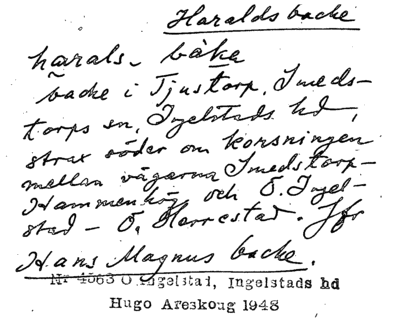 Haraldsbacke
harals- båka
backe i Tjustorp, Smeds-
torps sn, Ingelstads hd,
strax söder om korsningen
mellan vägarna Smedstorp-
Hammenhög och Ö. Ingel-
stad - Ö. Herrestad. Jfr
Hans Magnus backe.
Nr 4563 Ö Ingelstad, Ingelstads hd
Hugo Areskoug 1948